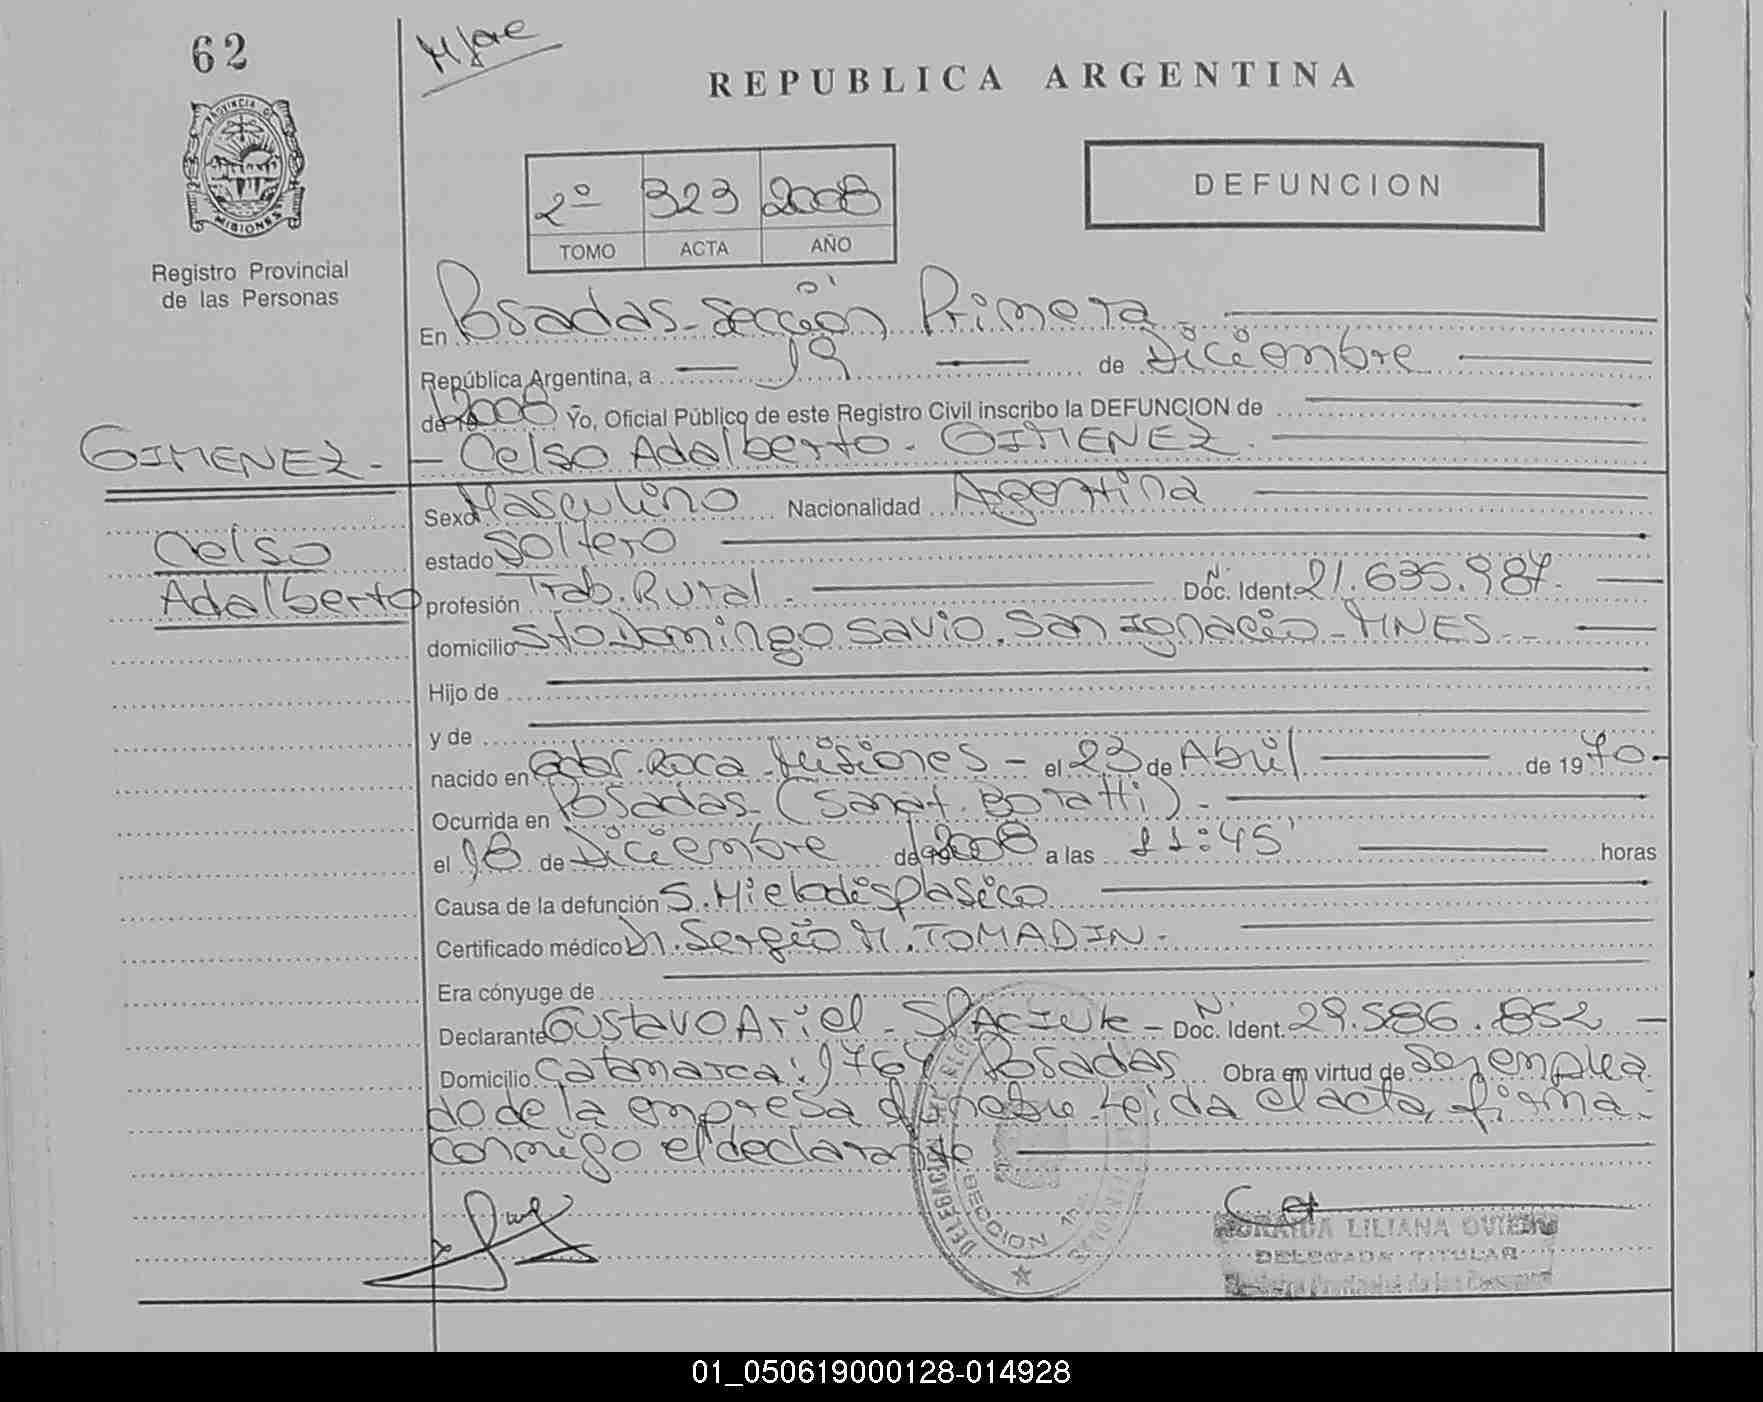 62
REPUBLICA ARGENTINA
2º 323 2008
TOMO ACTA AÑO
DEFUNCION
PROVINCIA DE
MISIONES
Registro Provincial
de las Personas
En Posadas-Sección Primera
República Argentina, a 19 de Diciembre
de 2008 Yo, Oficial Público de este Registro Civil inscribo la DEFUNCION de
GIMENEZ.- - Celso Adalberto - GIMENEZ.
Sexo Masculino Nacionalidad Argentina
Celso
estado Soltero
Adalberto
profesión Trab. Rural. - Nº Doc. Ident 21.635.987.
domicilio Sto Domingo Savio. San Ignacio - MNES. -
Hijo de
y de
nacido en Gdor. Roca Misiones - el 23 de Abril de 1970-
Ocurrida en Posadas- (Sanat. Boratti). -
el 18 de Diciembre de 2008 a las 11:45' horas
Causa de la defunción S. Mielodisplasico
Certificado médico Dr. Sergio M. TOMADIN.-
Era cónyuge de
Declarante Gustavo Ariel - Nº Doc. Ident. 29.586.852 -
Domicilio Catamarca: 1764 Posadas Obra en virtud de ser emplea
do de la empresa fúnebre leida el acta, firma
conmigo el declarante
DELEGACION
SECCION
LILIANA
DELEGADA TITULAR
Registro Provincial de las Personas
01_050619000128-014928